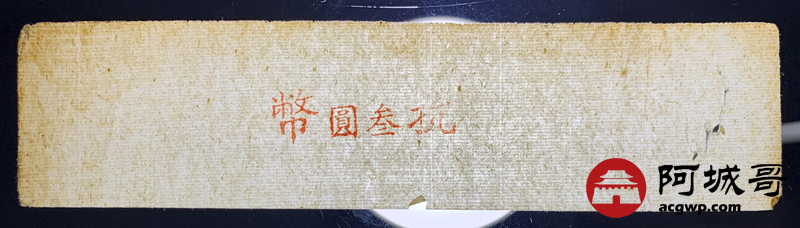 叁圓幣
阿城哥
acgwp.com